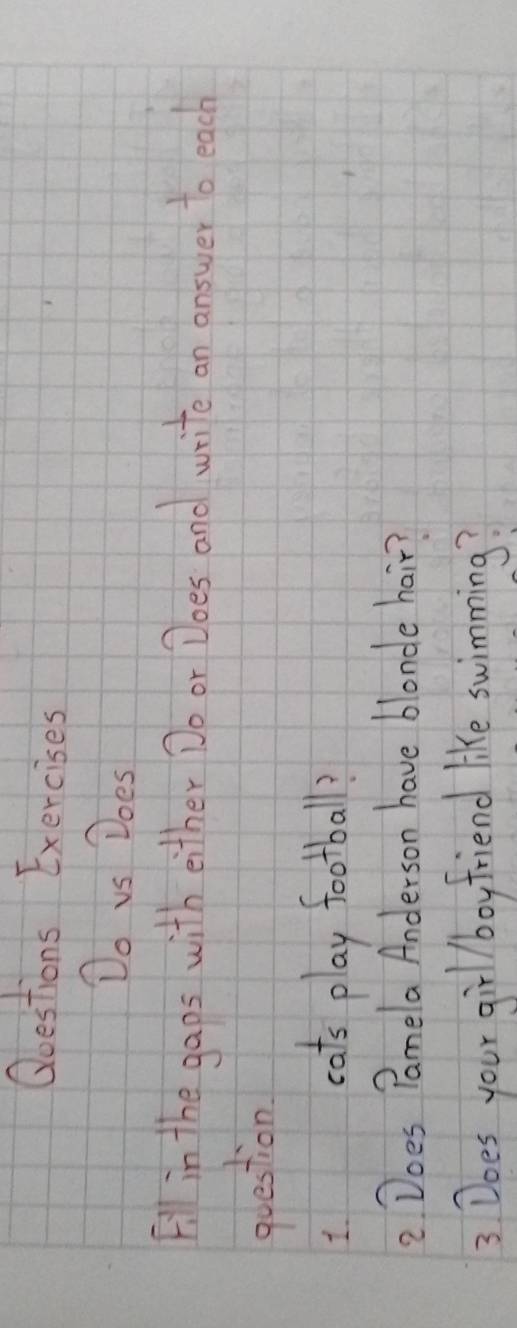 Questions Exercises
Do vs Does
Fill in the gaps with either Do or Does and write an answer to each
question.
1. cats play football?
2. Does Pamela Anderson have blonde hair?
3. Does your girl/boyfriend like swimming?